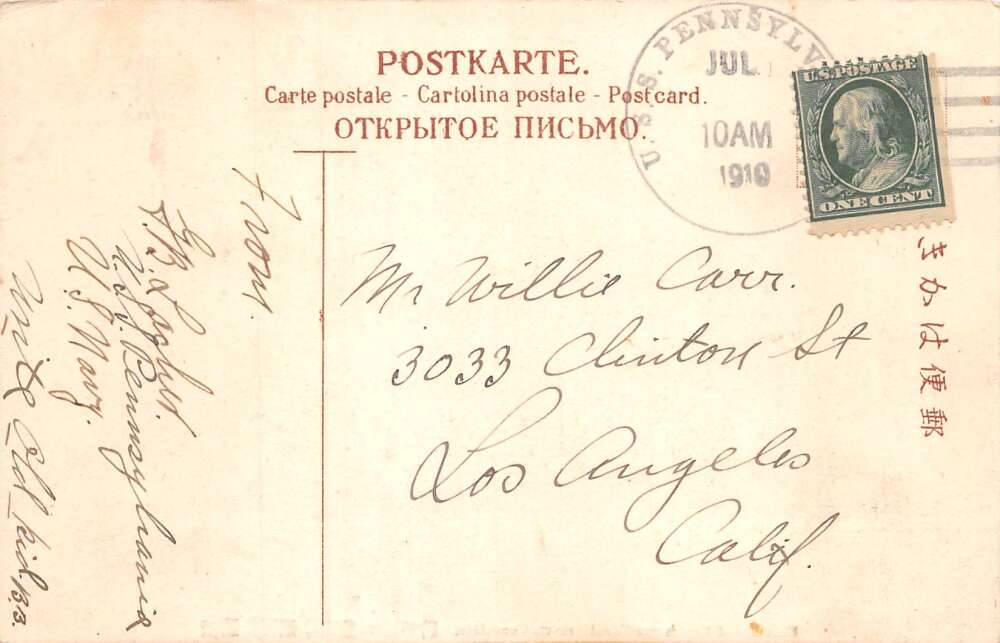 POSTKARTE.
Carte postale - Cartolina postale - Postcard.
ОТКРЫТОЕ ПИСЬМО.
U.S.S. PENNSYLV
JUL
10AM
1910
U.S. POSTAGE
ONE CENT
きかは便郵
Mr Willie Carr.
3033 Clinton St
Los Angeles
Calif.
From.
U.S.S. Pennsylvania
U.S. Navy.
Write Old kid